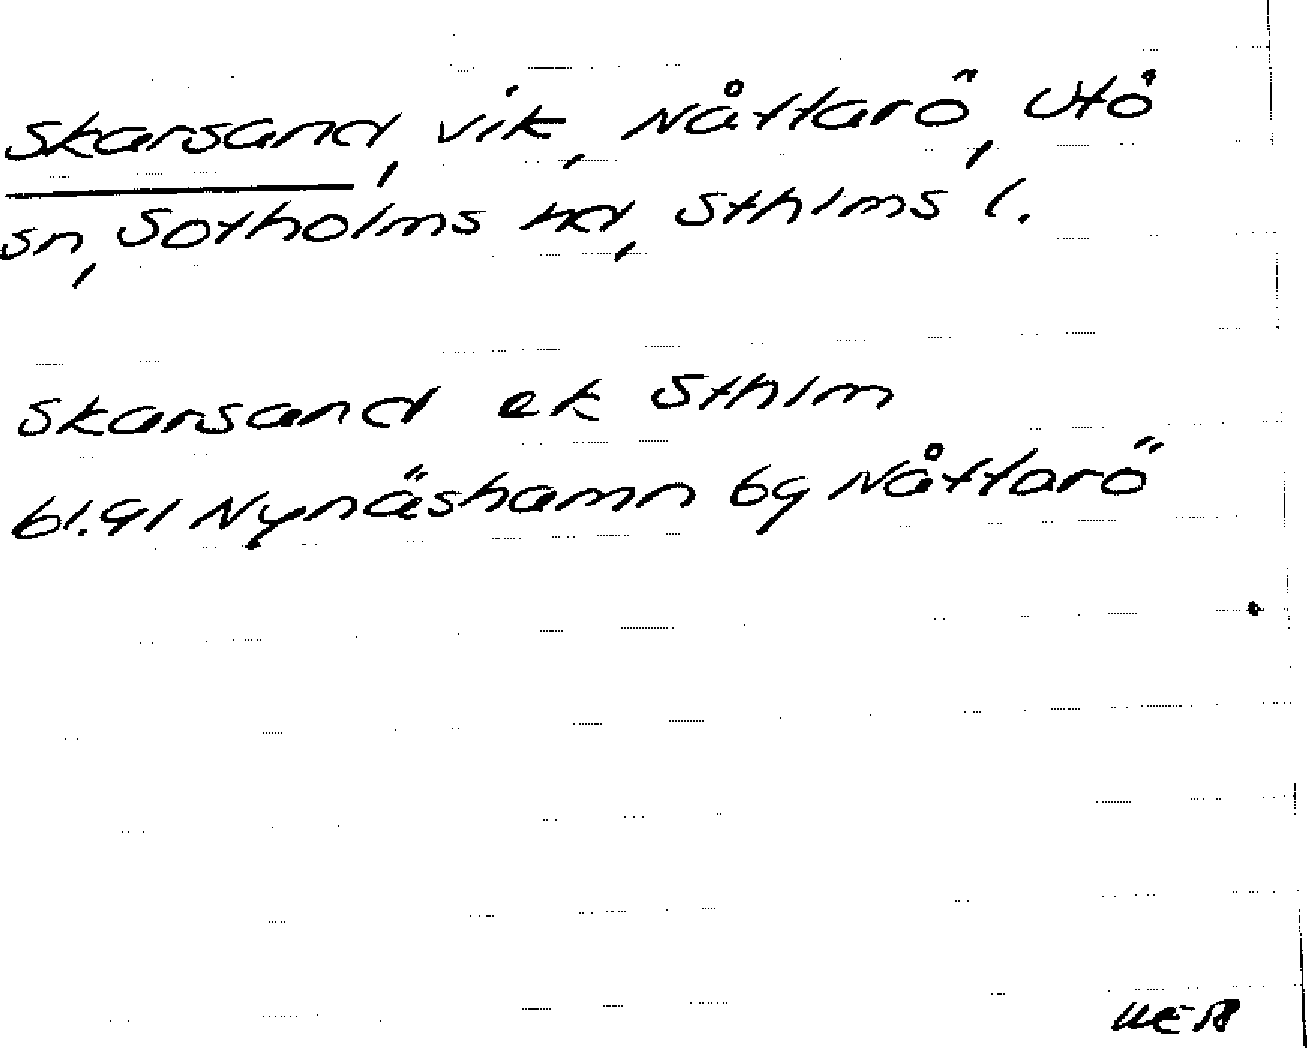 Skarsand, vik, Nåttarö, Utö
sn, Sotholms hd, Sthlms l.
Skarsand ek Sthlm
bl. 91 Nynäshamn bg Nåttarö